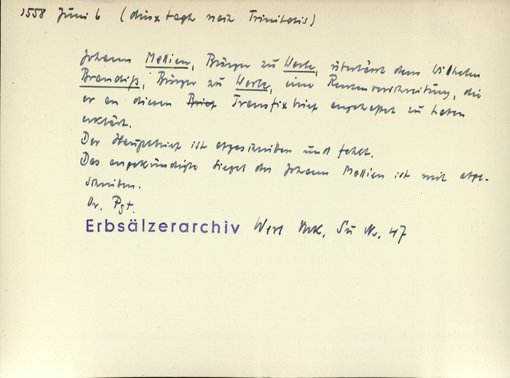 1558 Juni 6 (dinxtagh nach Trinitatis)
Johann Mellien, Bürger zu Werle, überlässt dem Wilhelm
Brandiß, Bürger zu Werle, eine Rentenverschreibung, die
er an diesen Brief Transfixbrief angeheftet zu haben
erklärt.
Der Hauptbrief ist abgeschnitten und fehlt.
Das angekündigte Siegel des Johann Mellien ist mit abge-
schnitten.
Or. Pgt.
Erbsälzerarchiv Werl Urk. Nr. 47